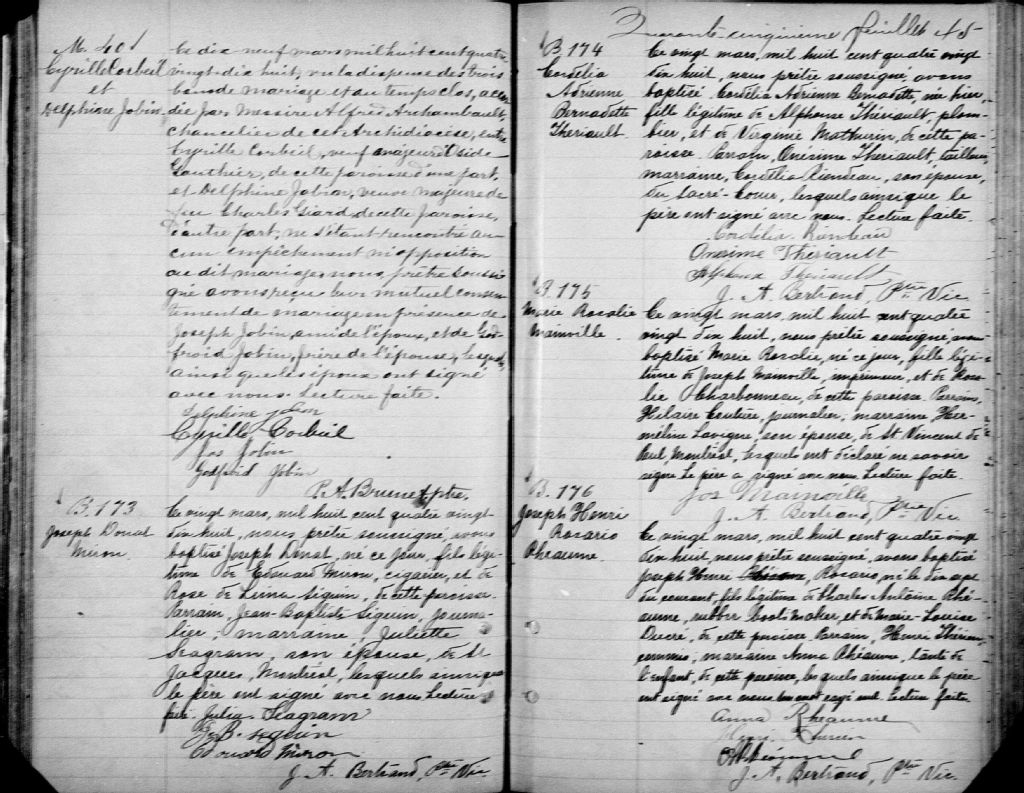 M. 40
Cyrille Corbeil
et
Delphine Jobin
Ce dix neuf mars mil huit cent quatre
vingt-dix huit, vu la dispense des trois
bans de mariage et au temps clos, accor
dée par Messire Alfred Archambault,
chancelier de cet Archidiocèse, entre
Cyrille Corbeil, veuf majeur d'
Gauthier, de cette paroisse d'une part,
et Delphine Jobin, veuve majeure de
feu Charles Giard de cette Paroisse,
d'autre part, ne s'étant rencontré au-
cun empêchement ni opposition
au dit mariage, nous, prêtre soussi
gné avons reçu leur mutuel consen
tement de mariage en présence de
Joseph Jobin, ami de l'époux, et de God
froid Jobin, frère de l'épouse, lesquels,
ainsi que les époux ont signé
avec nous. Lecture faite.
Delphine Jobin
Cyrille Corbeil
Jos Jobin
Godfroid Jobin
P. A. Brunet ptre.
B. 173
Joseph Donat
Miron
Ce vingt mars, mil huit cent quatre vingt
dix huit, nous prêtre soussigné, avons
baptisé Joseph Donat, né ce jour, fils légi-
time de Edouard Miron, cigarier, et de
Rose de Lima Siguin, de cette paroisse.
Parrain, Jean-Baptiste Siguin, journa-
lier, marraine, Juliette
Seagram, son épouse, de St
Jacques, Montréal, lesquels ainsi que
le père ont signé avec nous. Lecture
faite. Julia Seagram
J. B. siguin
Edouard Miron
J. A. Bertrand, Ptre Vic
Quarante cinquième feuillet 45
B 174
Cordélia
Adrienne
Bernadette
Thériault.
Ce vingt mars, mil huit cent quatre vingt
dix huit, nous prêtre soussigné, avons
baptisé Cordélia Adrienne Bernadette, née hier,
fille légitime de Alphonse Thériault, plom-
bier, et de Virginie Mathurin, de cette pa-
roisse. Parrain, Onésime Thériault, tailleur,
marraine, Cordélia Riendeau, son épouse,
du Sacré-Coeur, lesquels ainsi que le
père ont signé avec nous. Lecture faite.
Cordélia Riendeau
Onésime Thériault
Alphonse Thériault
J. A. Bertrand, Ptre Vic
B. 175
Marie Rosalie
Mainville.
Ce vingt mars, mil huit cent quatre
vingt dix huit, nous prêtre soussigné, avons
baptisé Marie Rosalie, né ce jour, fille légi-
time de Joseph Mainville, imprimeur, et de Rosa-
lie Charbonneau, de cette paroisse. Parrain,
Hilaire Couture, journalier, marraine, Her-
méline Lavigne, son épouse, de St Vincent de
Paul, Montréal, lesquels ont déclaré ne savoir
signer. Le père a signé avec nous. Lecture faite.
Jos Mainville
J. A. Bertrand, Ptre Vic.
B. 176
Joseph Henri
Rosario
Rhéaume.
Ce vingt mars, mil huit cent quatre vingt
dix huit, nous prêtre soussigné, avons baptisé
Joseph Henri Rosario, né le dix sept
du courant, fils légitime de Charles Antoine Rhé-
aume, rubber boot-maker, et de Marie-Louise
Ducré, de cette paroisse. Parrain, Henri Thérien
commis, marraine Anna Rhéaume, tante de
l'enfant, de cette paroisse, lesquels ainsi que le père
ont signé avec nous. un mot rayé nul. Lecture faite.
Anna Rheaume
Henri Thérien
J. A. Bertrand, Ptre Vic.